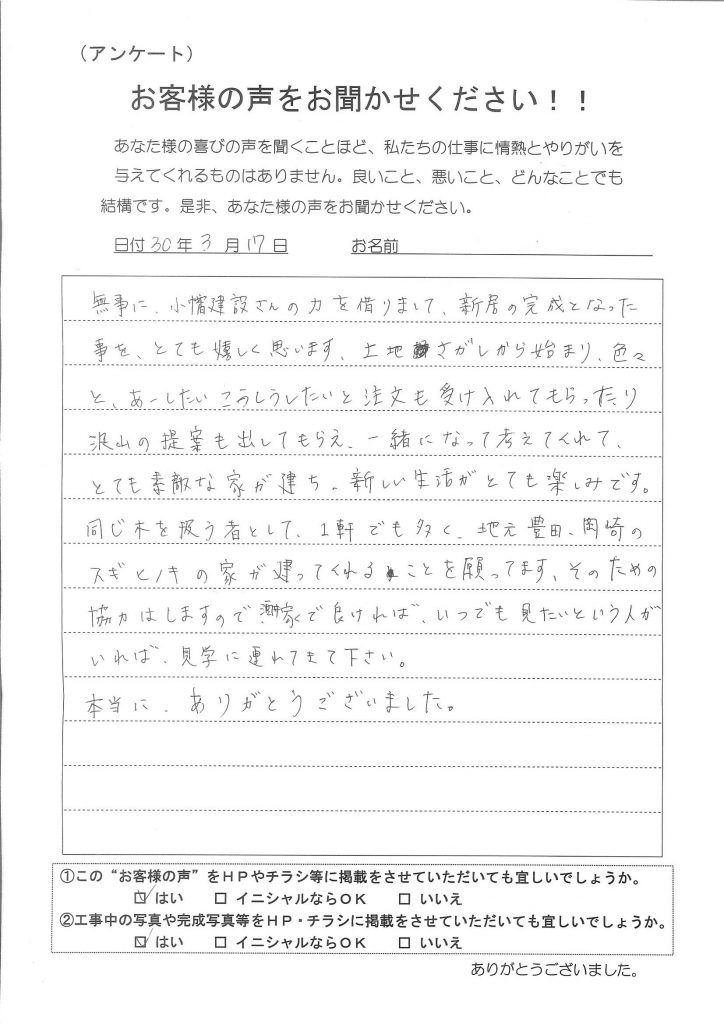 （アンケート）
お客様の声をお聞かせください！！
あなた様の喜びの声を聞くことほど、私たちの仕事に情熱とやりがいを
与えてくれるものはありません。良いこと、悪いこと、どんなことでも
結構です。是非、あなた様の声をお聞かせください。
日付30年3月17日 お名前
無事に、小幡建設さんの力を借りまして、新居の完成となった
事を、とても嬉しく思います、土地さがしから始まり、色々
と、あーしたいこうしうしたいと注文も受け入れてもらったり
沢山の提案も出してもらえ、一緒になって考えてくれて、
とても素敵な家が建ち、新しい生活がとても楽しみです。
同じ木を扱う者として、1軒でも多く、地元豊田、岡崎の
スギヒノキの家が建ってくれることを願ってます、そのための
協力はしますので家で良ければ、いつでも見たいという人が
いれば、見学に連れてきて下さい。
本当に、ありがとうございました。
①この“お客様の声”をＨＰやチラシ等に掲載をさせていただいても宜しいでしょうか。
☑ はい □ イニシャルならＯＫ □ いいえ
②工事中の写真や完成写真等をＨＰ・チラシに掲載をさせていただいても宜しいでしょうか。
☑ はい □ イニシャルならＯＫ □ いいえ
ありがとうございました。